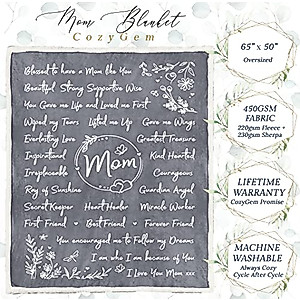 Mom Blanket
CozyGem
Blessed to have a Mom like You
Beautiful Strong Supportive Wise
You Gave me Life and Loved me First
Wiped my Tears Lifted me Up Gave me Wings
Everlasting Love Greatest Treasure
Inspirational Kind Hearted
Irreplaceable Courageous
Mom
Ray of Sunshine Guardian Angel
Secret Keeper Heart Healer Miracle Worker
First Friend Best Friend Forever Friend
You encouraged me to Follow my Dreams
I am who I am because of You
I Love You Mom xxx
65" x 50"
Oversized
450GSM
FABRIC
220gsm Fleece +
230gsm Sherpa
LIFETIME
WARRANTY
CozyGem Promise
MACHINE
WASHABLE
Always Cozy
Cycle After Cycle